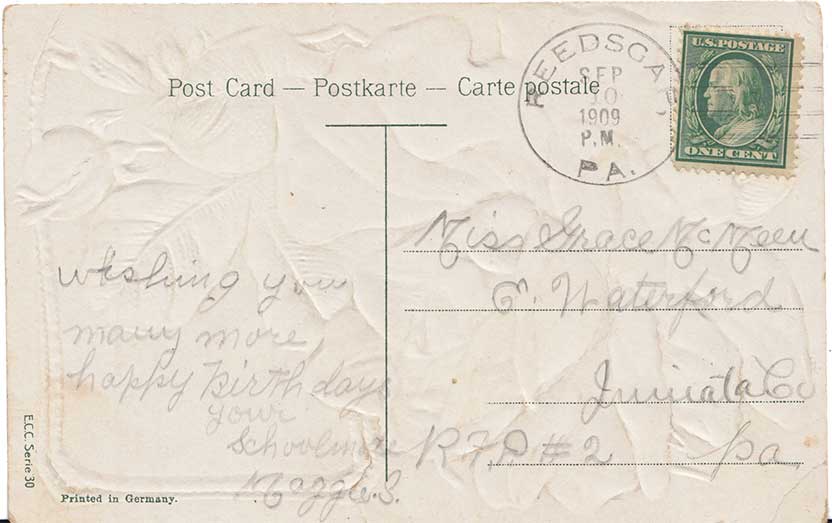 Post Card — Postkarte — Carte postale
REEDSGAP
SEP
10
1909
P.M.
PA.
U.S. POSTAGE
ONE CENT
Miss Grace McMeen
E. Waterford
Juniata Co
RFD # 2 Pa
wishing you
many more
happy Birthdays
your
Schoolmate
Maggie. S.
E.C.C. Serie 30
Printed in Germany.